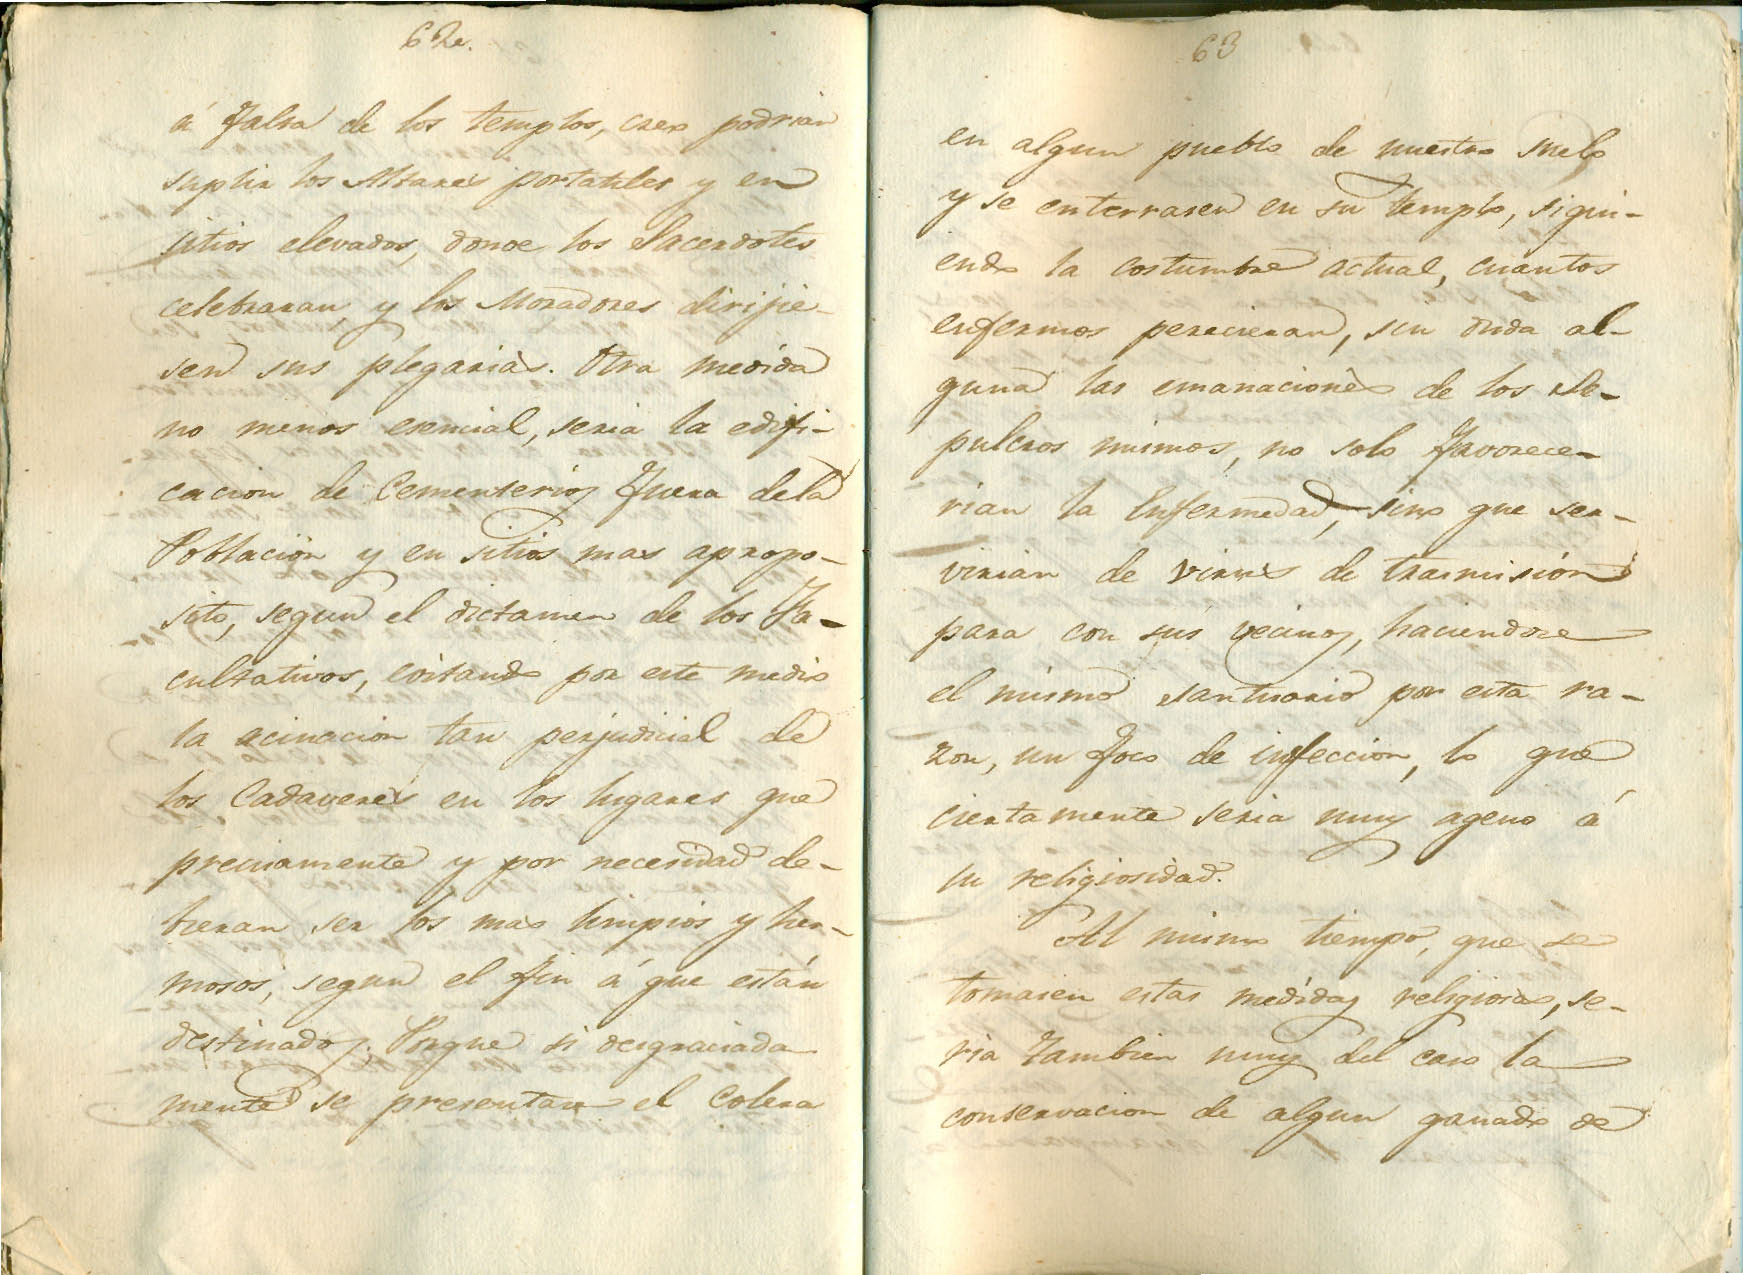 62.
á falta de los templos, creo podrian
suplir los Altares portatiles y en
sitios elevados, donde los Sacerdotes
celebraran, y los Moradores dirijie-
sen sus plegarias. Otra medida
no menos esencial, seria la edifi-
cacion de Cementerios fuera dela
Poblacion y en sitios mas apropo-
sito, segun el dictamen de los Fa-
cultativos, evitando por este medio
la acinacion tan perjudicial de
los Cadaveres en los lugares que
precisamente y por necesidad de-
bieran ser los mas limpios y her-
mosos, segun el fin á que están
destinados. Porque si desgraciada
mente se presentare el Colera
63
en algun pueblo de nuestro suelo
y se enterrasen en su templo, sigui-
endo la costumbre actual, cuantos
enfermos perecieran, sin duda al-
guna las emanaciones de los Se-
pulcros mismos, no solo favorece-
rian la Enfermedad, sino que ser-
virian de virus de trasmisión
para con sus vecinos, haciendose
el mismo santuario por esta ra-
zon, un foco de infeccion, lo que
ciertamente seria muy ageno á
su religiosidad.
Al mismo tiempo, que se
tomasen estas medidas religiosas, se-
ria tambien muy del caso la
conservacion de algun ganado de